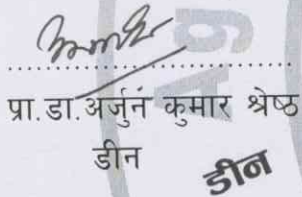 प्रा.डा.अर्जुन कुमार श्रेष्ठ
डीन
डीन